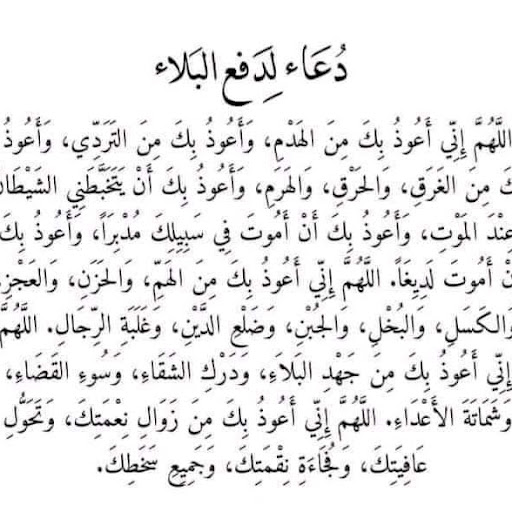 دُعَاء لِدَفع البَلاء
اللَّهُمَّ إِنِّي أَعُوذُ بِكَ مِنَ الهَدْمِ، وَأَعُوذُ بِكَ مِنَ التَرَدِّي، وَأَعُوذُ
كَ مِنَ الغَرَقِ، وَالحَرْقِ، وَالهَرَمِ، وَأَعُوذُ بِكَ أَنْ يَتَخَبَّطَنِي الشَيْطَان
عِنْدَ المَوْتِ، وَأَعُوذُ بِكَ أَنْ أَمُوتَ فِي سَبِيلِكَ مُدْبِرَاً، وَأَعُوذُ بِكَ
نْ أَمُوتَ لَدِيغَاً. اللَّهُمَّ إِنِّي أَعُوذُ بِكَ مِنَ الهَمِّ، وَالحَزَنِ، وَالعَجْزِ
وَالكَسَلِ، وَالبُخْلِ، وَالجُبْنِ، وَضَلْعِ الدَّيْنِ، وَغَلَبَةِ الرِّجَالِ. اللَّهُمَّ
إِنِّي أَعُوذُ بِكَ مِن جَهْدِ البَلَاءِ، وَدَرْكِ الشَقَاءِ، وَسُوءِ القَضَاءِ،
وَشَمَاتَةَ الأَعْدَاءِ. اللَّهُمَّ إِنِّي أَعُوذُ بِكَ مِنَ زَوَالِ نِعْمَتِكَ، وَتَحَوُّلِ
عَافِيَتِكَ، وَفُجَاءَةِ نِقْمَتِكَ، وَجَمِيعِ سَخَطِكَ.